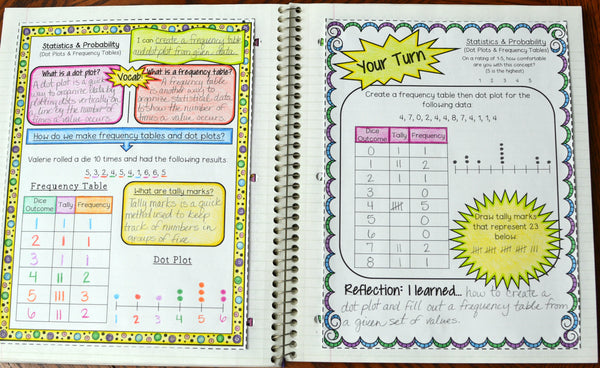 Statistics & Probability
(Dot Plots & Frequency Tables)
I can create a frequency table
and dot plot from given data.
What is a dot plot?
A dot plot is a
way to organize data by
plotting dots vertically on
a line by the number of
times a value occurs.
Vocab
What is a frequency table?
A frequency table
is another way to
organize statistical data
to show the number of
times a value occurs.
How do we make frequency tables and dot plots?
Valerie rolled a die 10 times and had the following results.
5, 3, 2, 4, 5, 4, 1, 6, 6, 5
Frequency Table
Dice Outcome Tally Frequency
1 | 1
2 | 1
3 | 1
4 || 2
5 ||| 3
6 || 2
What are tally marks?
Tally marks is a quick
method used to keep
track of numbers in
groups of five.
Dot Plot
1 2 3 4 5 6
Your Turn
Statistics & Probability
(Dot Plots & Frequency Tables)
On a rating of 1-5, how comfortable
are you with this concept?
(5 is the highest)
1 2 3 4 5
Create a frequency table then dot plot for the
following data:
4, 7, 0, 2, 4, 4, 8, 7, 4, 1, 1, 4
Dice Outcome Tally Frequency
0 | 1
1 || 2
2 | 1
3 0
4 |||| 5
5 0
6 0
7 || 2
8 | 1
Draw tally marks
that represent 23
below.
|||| |||| |||| |||| |||
Reflection: I learned... how to create a
dot plot and fill out a frequency table from
a given set of values.